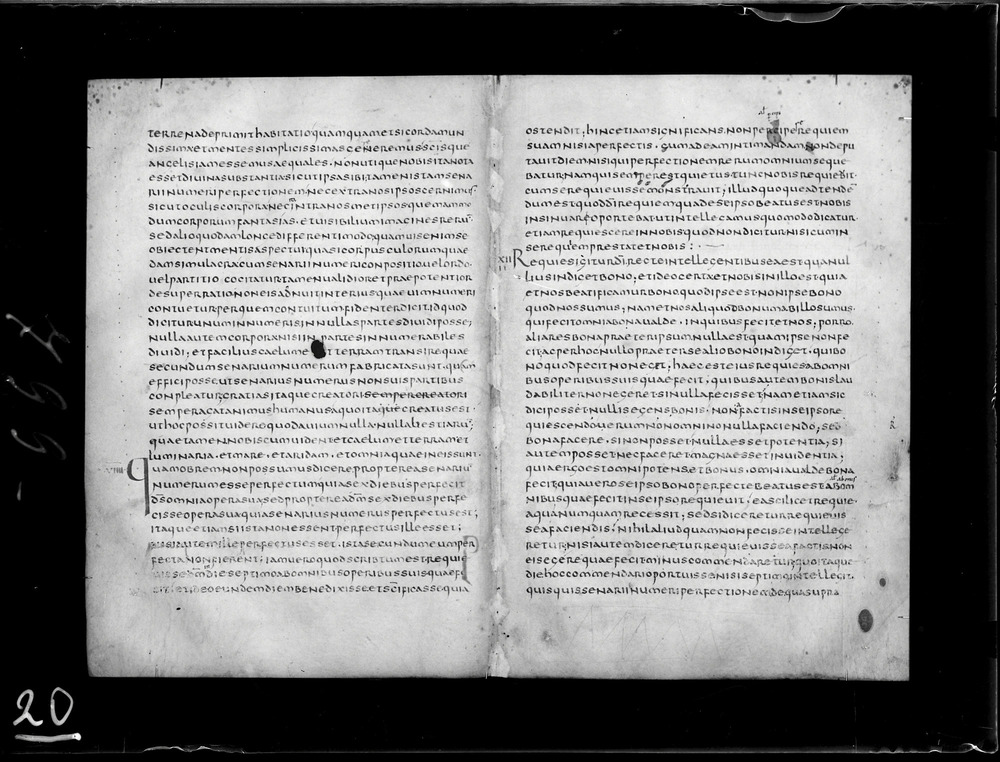 terrenadeprimithabitatioquamquametsicordamun
dissimaetmentessimplicissimascereremusscisque
angelisiamessemusaequales.nonutiquenobisitanota
essetdiuinasubstantiasicutipsasibitamenistamsena
riinumeriperfectionemnecextranosipsoscernimus
sicutoculiscorporanecintranosmetipsosquemammo
dumcorporumfantasias.etuisibiliumimaginesrerum
sedalioquodamlongedifferentimodoquamuisenimse
obiectentmentisaspectuiquasicorpusculorumquae
damsimulacracumsenariinumericonpositiouelordo.
uelpartitio cogitaturtamenualidioretpraepotentior
desuperrationoneisadnuitinteriusqueuimnumeri
contueturperquemcontuitumfidenterdicitidquod
diciturunuminnumerisinnullaspartesdiuidiposse;
nullaautemcorporanisiin partesinnumerabiles
diuidi; etfaciliuscaelume tterramtransirequae
secundumsenariumnumerumfabricatasunt.quam
efficipossetutsenariusnumerusnonsuispartibus
conpleaturgratiasitaquecreatorisemperereatori
semperacatanimushumanusaquoitaquecreatusest.
uthocpossituiderequodauiumnulla.nullabestiaru;
quaetamennobiscumuidentetcaelumetterramet
luminaria.etmare.etaridam.etomniaquaeineissunt.
uiiii Quamobremnonpossumusdicereproptereasenariu
numerumesseperfectumquiasexdiebusperfecit
dsomniaoperasuasedpropereadmsexdiebusperfe
cisseoperasuaquiasenariusnumerusperfectusest;
itaqueetiamsiistanonessentperfectusilleesset;
nisiautemilleperfectusesset.istasecundumeumper
fectanonfierent; iamueroquodscribtumestrequie
uissedmdieseptimoabomnibusoperibussuisquaefe
cit. etideoeundemdiembenedixisseetscificassequia
ostendit; hincetiamsignificans.nonpercipererequiem
suamnisiaperfectis.cumadeamintimandamnondepu
tauitdiemnisiquiperfectionemrerumomniumseque
baturnamquisemperestquietustuncnobisrequieuit.
cumserequieuissemonstrauit; illudquoqueadtende
dumestquoddirequiemquadeseipsobeatusestnobis
insinuareoportebatutintellegamusquomododicatur.
etiamrequiescereinnobisquodnondicitur nisicumin
serequiempraestatetnobis:
XII Requiesigiturdirecteintellegentibuseaestquanul
liusindicetbono; etideocertaetnobisinilloestquia
etnosbeatificamurbonoquodipseest.nonipsebono
quodnossumus; nametnosaliquodbonumabillosumus.
quifecitomniabonaualde.inquibusfecitetnos; porro.
aliaresbonapraeteripsumnullaestquamipsenonfe
cit;acperhocnullopraeterseałiobonoindiget.quibo
noquodfecitnoneget; haecesteiusrequiesabomni
busoperibussuisquaefecit.quibusautembonislau
dabiliternonegeretsinullafecissetnametiamsic
dicipossetnullisegensbonis.nonafactisinseipsore
quiescendouerumomnomninonullafaciendo; sed
bonafacere.sinonpossetnullaessetpotentia; si
autempossetnecfaceretmagnaessetinuidentia;
quiaergoestomnipotensetbonus.omniaualdebona
fecit;quiaueroseipsobonoperfectebeatusestabom
nibusquaefecitinseipsorequieuit.eascilicetrequie.
aquanumquamrecessit; sedsidicereturrequieuis
seafaciendis.nihilaliudquamnonfecisseintellege
retur;nisiautemdicereturrequieuisseafactisnon
eisegerequaefecitminuscommendareturquoitaque
diehoccommendarioportuissenisiseptimointellegit.
quisquissenariinumeriperfectionemdequasupra
20